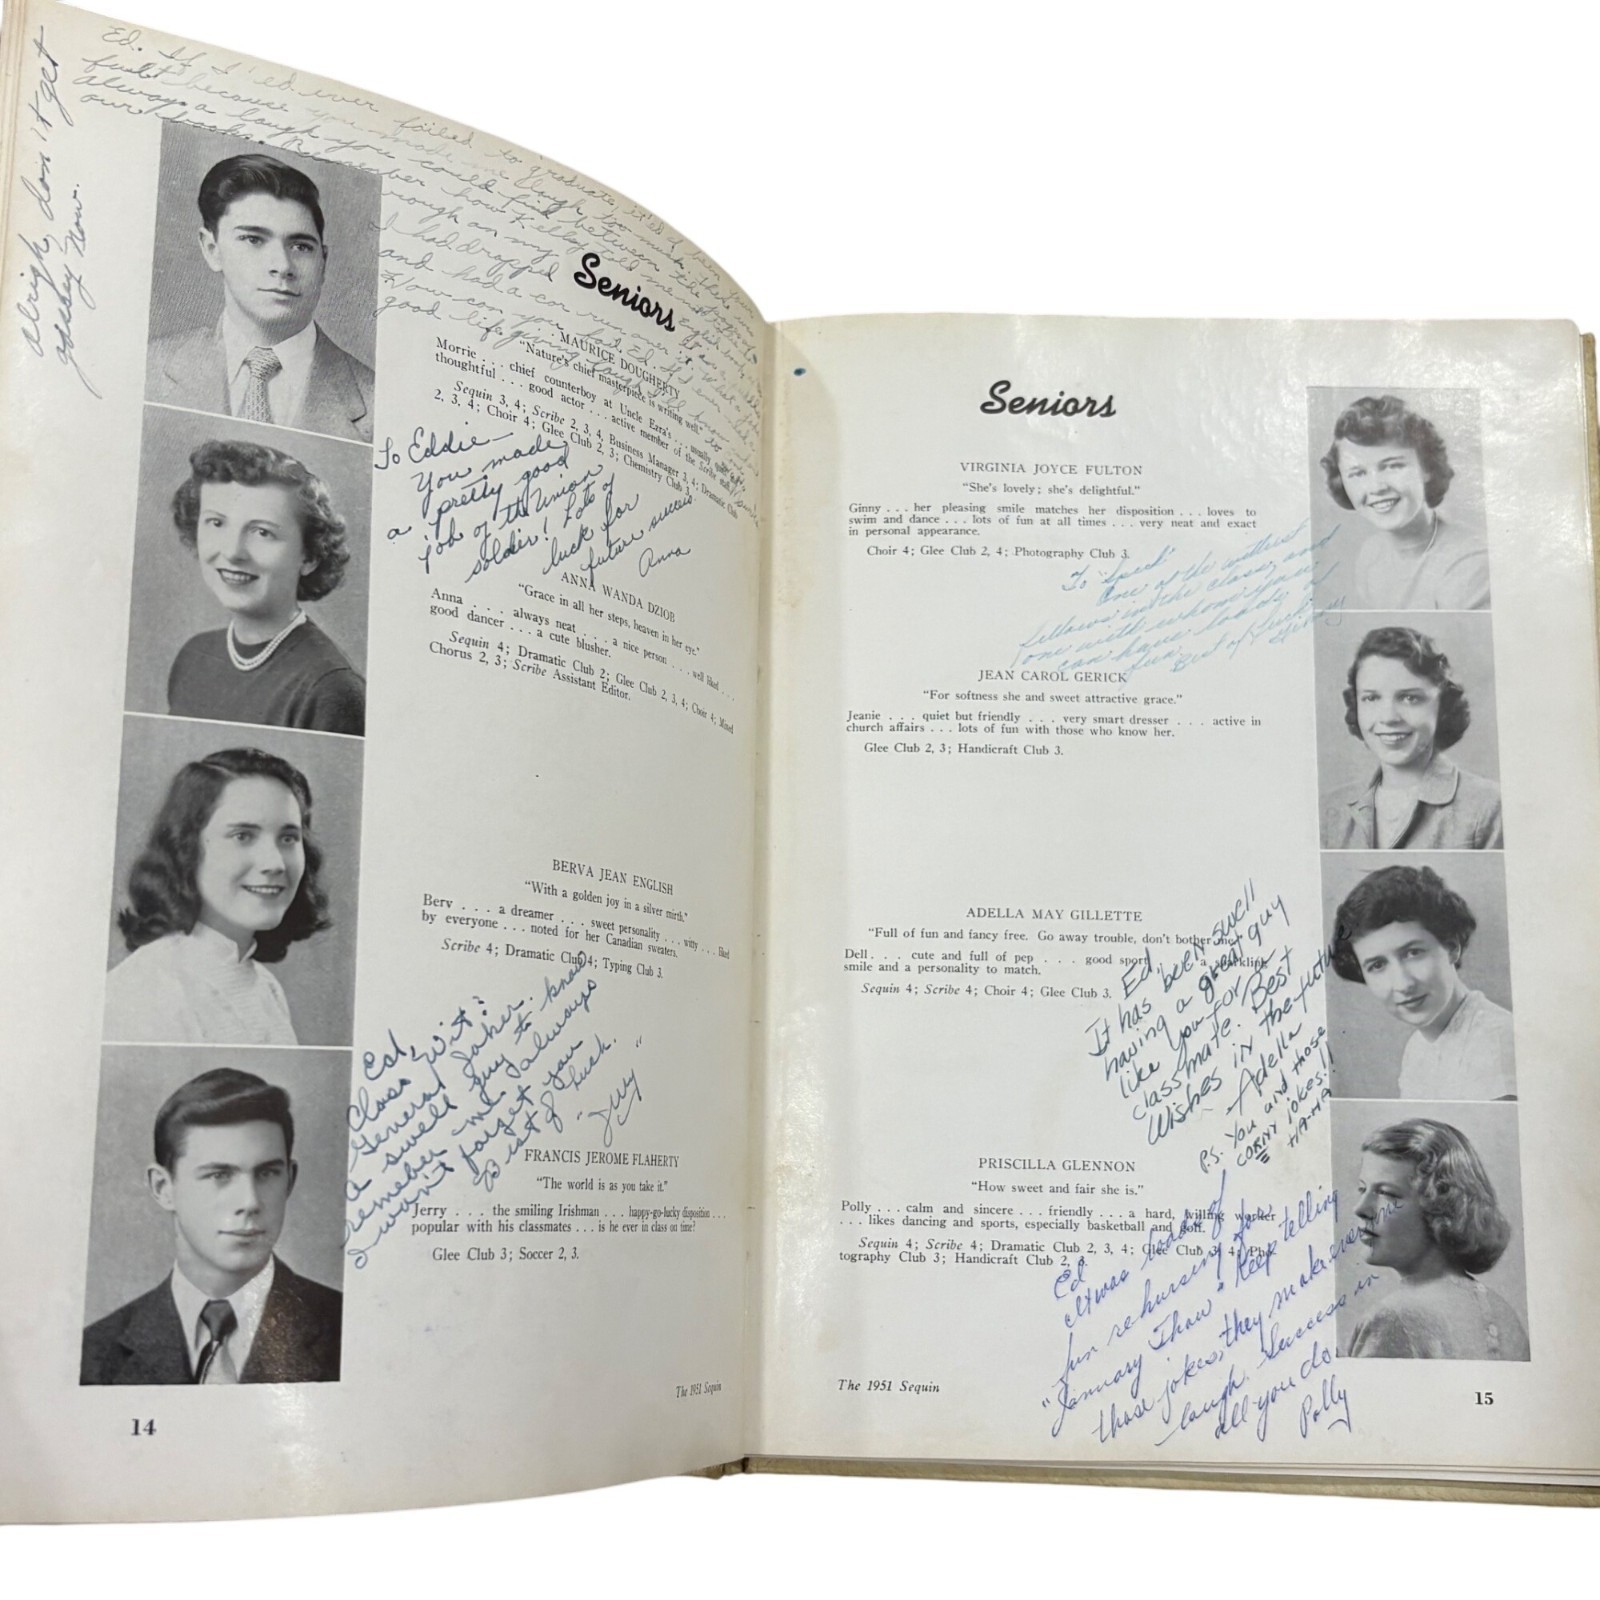 alrigh, don't get
gassey now.
Ed. If I'ed ever failed to graduate, it'ed been your
fault because you made me laugh too much. There
always a laugh you could find between the pages of
our books. Remember how Kelley told me
through an my English book,
I had dropped it
and had a car run over it. What a
Now can you had, Ed.
good life giving
Seniors
MAURICE DOUGHERTY
"Nature's chief masterpiece is writing well."
Morrie . . . chief counterboy at Uncle Ezra's . . . usually quiet and
thoughtful . . . good actor . . . active member of the Scribe staff.
Sequin 3, 4; Scribe 2, 3, 4, Business Manager 3, 4; Dramatic Club
2, 3, 4; Choir 4; Glee Club 2, 3; Chemistry Club 3.
To Eddie—
You made
a pretty good
job of the Union
soldier! Lots of
luck for
future success
Anna
ANNA WANDA DZIOB
"Grace in all her steps, heaven in her eye."
Anna . . . always neat . . . a nice person . . . well liked . . .
good dancer . . . a cute blusher.
Sequin 4; Dramatic Club 2; Glee Club 2, 3, 4; Choir 4; Mixed
Chorus 2, 3; Scribe Assistant Editor.
BERVA JEAN ENGLISH
"With a golden joy in a silver mirth."
Berv . . . a dreamer . . . sweet personality . . . witty . . . liked
by everyone . . . noted for her Canadian sweaters.
Scribe 4; Dramatic Club 4; Typing Club 3.
Ed,
Class Wit?
General Joker.
a swell guy to know
remeber me always
I won't forget you
Best of luck.
"Jerry"
FRANCIS JEROME FLAHERTY
"The world is as you take it."
Jerry . . . the smiling Irishman . . . happy-go-lucky disposition . . .
popular with his classmates . . . is he ever in class on time?
Glee Club 3; Soccer 2, 3.
The 1951 Sequin
14
Seniors
VIRGINIA JOYCE FULTON
"She's lovely; she's delightful."
Ginny . . . her pleasing smile matches her disposition . . . loves to
swim and dance . . . lots of fun at all times . . . very neat and exact
in personal appearance.
Choir 4; Glee Club 2, 4; Photography Club 3.
To "Speed"
One of the wittiest
fellows in the class, and
one with whom you
can have loads of
fun.
Best of luck
Ginny
JEAN CAROL GERICK
"For softness she and sweet attractive grace."
Jeanie . . . quiet but friendly . . . very smart dresser . . . active in
church affairs . . . lots of fun with those who know her.
Glee Club 2, 3; Handicraft Club 3.
ADELLA MAY GILLETTE
"Full of fun and fancy free. Go away trouble, don't bother me."
Dell . . . cute and full of pep . . . good sport . . . a sparkling
smile and a personality to match.
Sequin 4; Scribe 4; Choir 4; Glee Club 3.
Ed,
It has been swell
having a great guy
like you for a
classmate. Best
Wishes in the future
- Adella
P.S. You and those
CORNY jokes!!
HA-HA
PRISCILLA GLENNON
"How sweet and fair she is."
Polly . . . calm and sincere . . . friendly . . . a hard, willing worker
. . . likes dancing and sports, especially basketball and golf.
Sequin 4; Scribe 4; Dramatic Club 2, 3, 4; Glee Club 3, 4; Pho-
tography Club 3; Handicraft Club 2, 3.
Ed
It was loads of
fun rehursing for
"January Thaw" Keep telling
those jokes, they make everyone
laugh. Success in
all you do
Polly
The 1951 Sequin
15